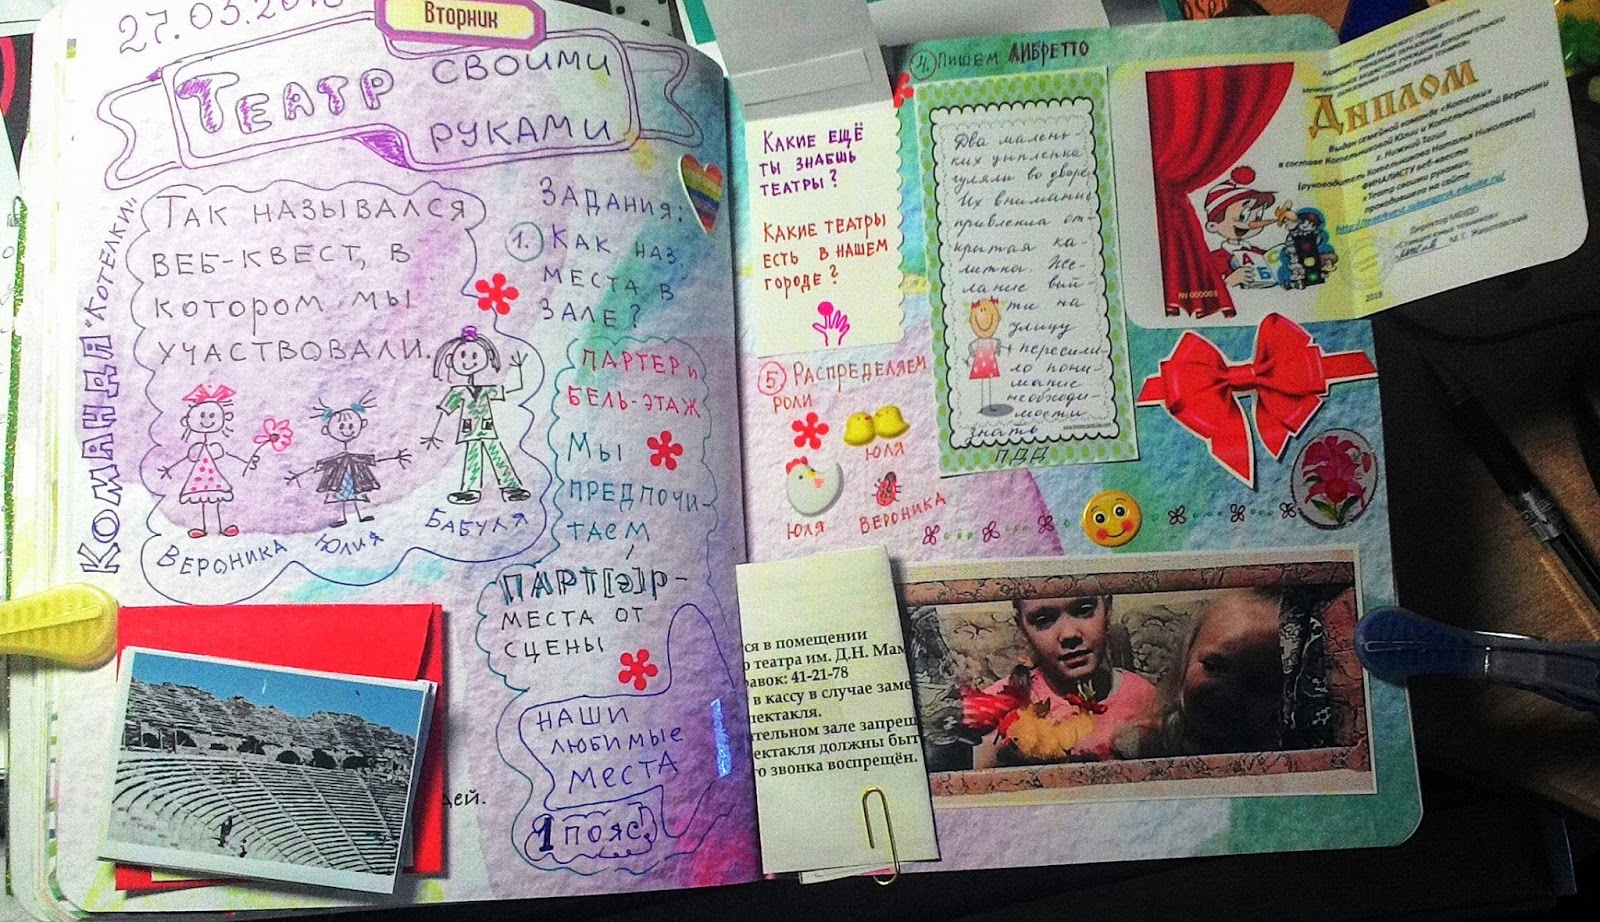 27.03.201
Вторник
ТЕАТР СВОИМИ
РУКАМИ
КОМАНДА "КОТЕЛКИ"
ТАК НАЗЫВАЛСЯ
ВЕБ-КВЕСТ, В
КОТОРОМ МЫ
УЧАСТВОВАЛИ.
ВЕРОНИКА
ЮЛИЯ
БАБУЛЯ
ЗАДАНИЯ:
1. КАК НАЗ.
МЕСТА В
ЗАЛЕ?
ПАРТЕР И
БЕЛЬ-ЭТАЖ
МЫ
ПРЕДПОЧИ-
ТАЕМ
ПАРТ[Э]Р-
МЕСТА ОТ
СЦЕНЫ
НАШИ
ЛЮБИМЫЕ
МЕСТА
1 ПОЯС.
дей.
КАКИЕ ЕЩЁ
ТЫ ЗНАЕШЬ
ТЕАТРЫ?
КАКИЕ ТЕАТРЫ
ЕСТЬ В НАШЕМ
ГОРОДЕ?
4. ПИШЕМ ЛИБРЕТТО
Два малень-
ких цыплёнка
гуляли во дворе.
Их внимание
привлекла от-
крытая ка-
литка. Же-
лание вый-
ти на
улицу
пересили-
ло пони-
мание
необходи-
мости
знать
ПДД
5. РАСПРЕДЕЛЯЕМ
РОЛИ
ЮЛЯ
ЮЛЯ
ВЕРОНИКА
Диплом
Выдан семейной команде «Котелки»
в составе Котельниковой Юлии и Котельниковой Вероники
г. Нижний Тагил
(руководитель Котельникова Наталья Николаевна)
ФИНАЛИСТУ веб-квеста
«Театр своими руками»,
проводимого на сайте
Директор МБУДО
«Станция юных техников»
М.Г. Животовский
АБС
№ 000003
2018
ся в помещении
о театра им. Д.Н. Мам
равок: 41-21-78
в кассу в случае заме
пектакля.
ительном зале запрещ
пектакля должны быт
го звонка воспрещён.